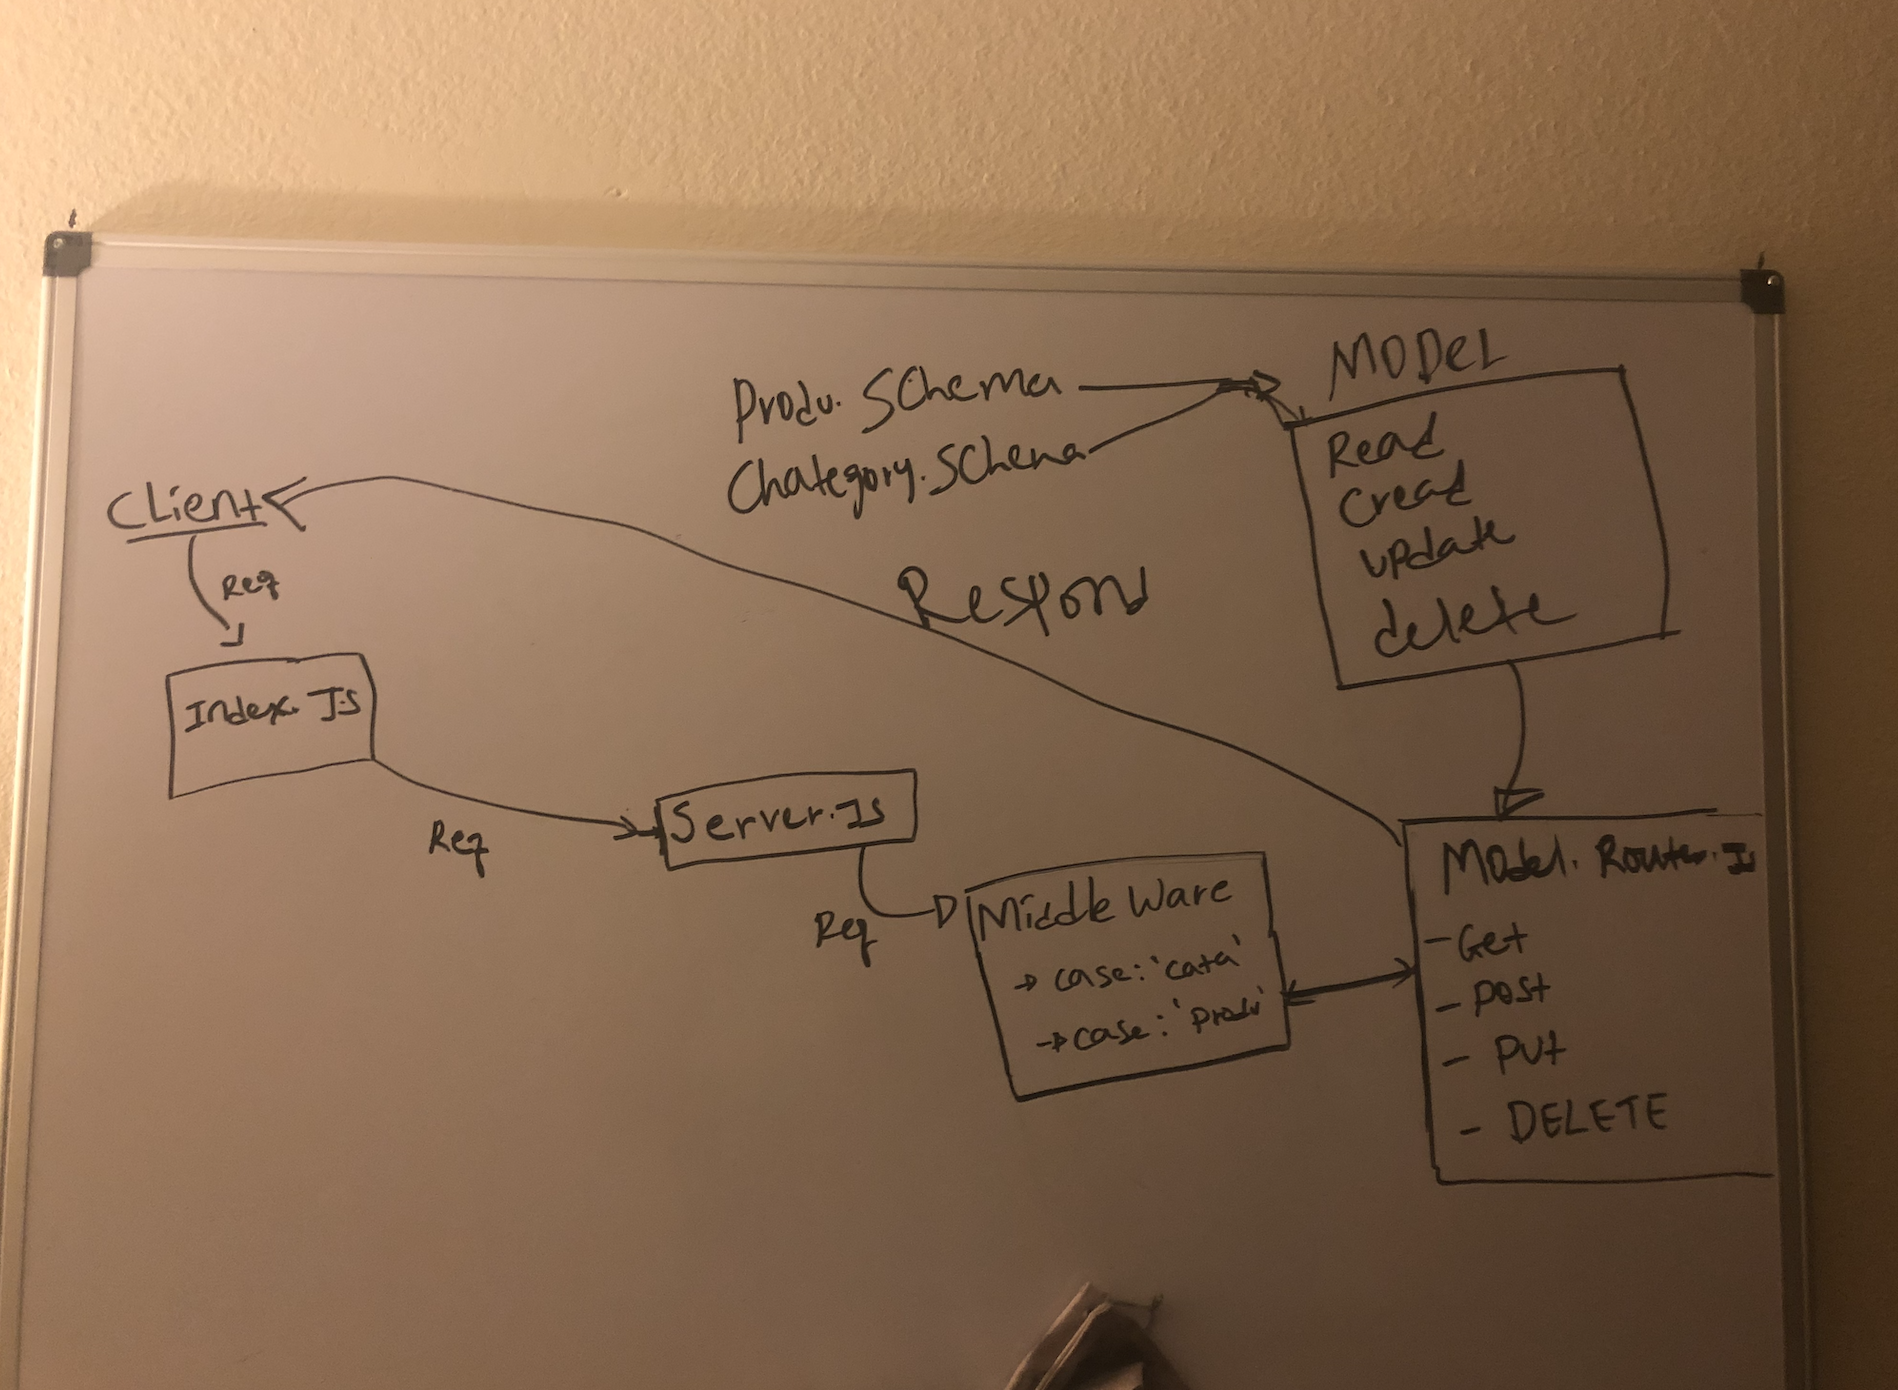 MODEL
Produ. Schema
Chategory. Schema
Read
Cread
update
delete
Client
Req
Respond
Index. JS
Req
Server. Js
Req
Middle Ware
→ case: 'cata'
→ case: 'produ'
Model. Router. Js
- Get
- post
- put
- DELETE